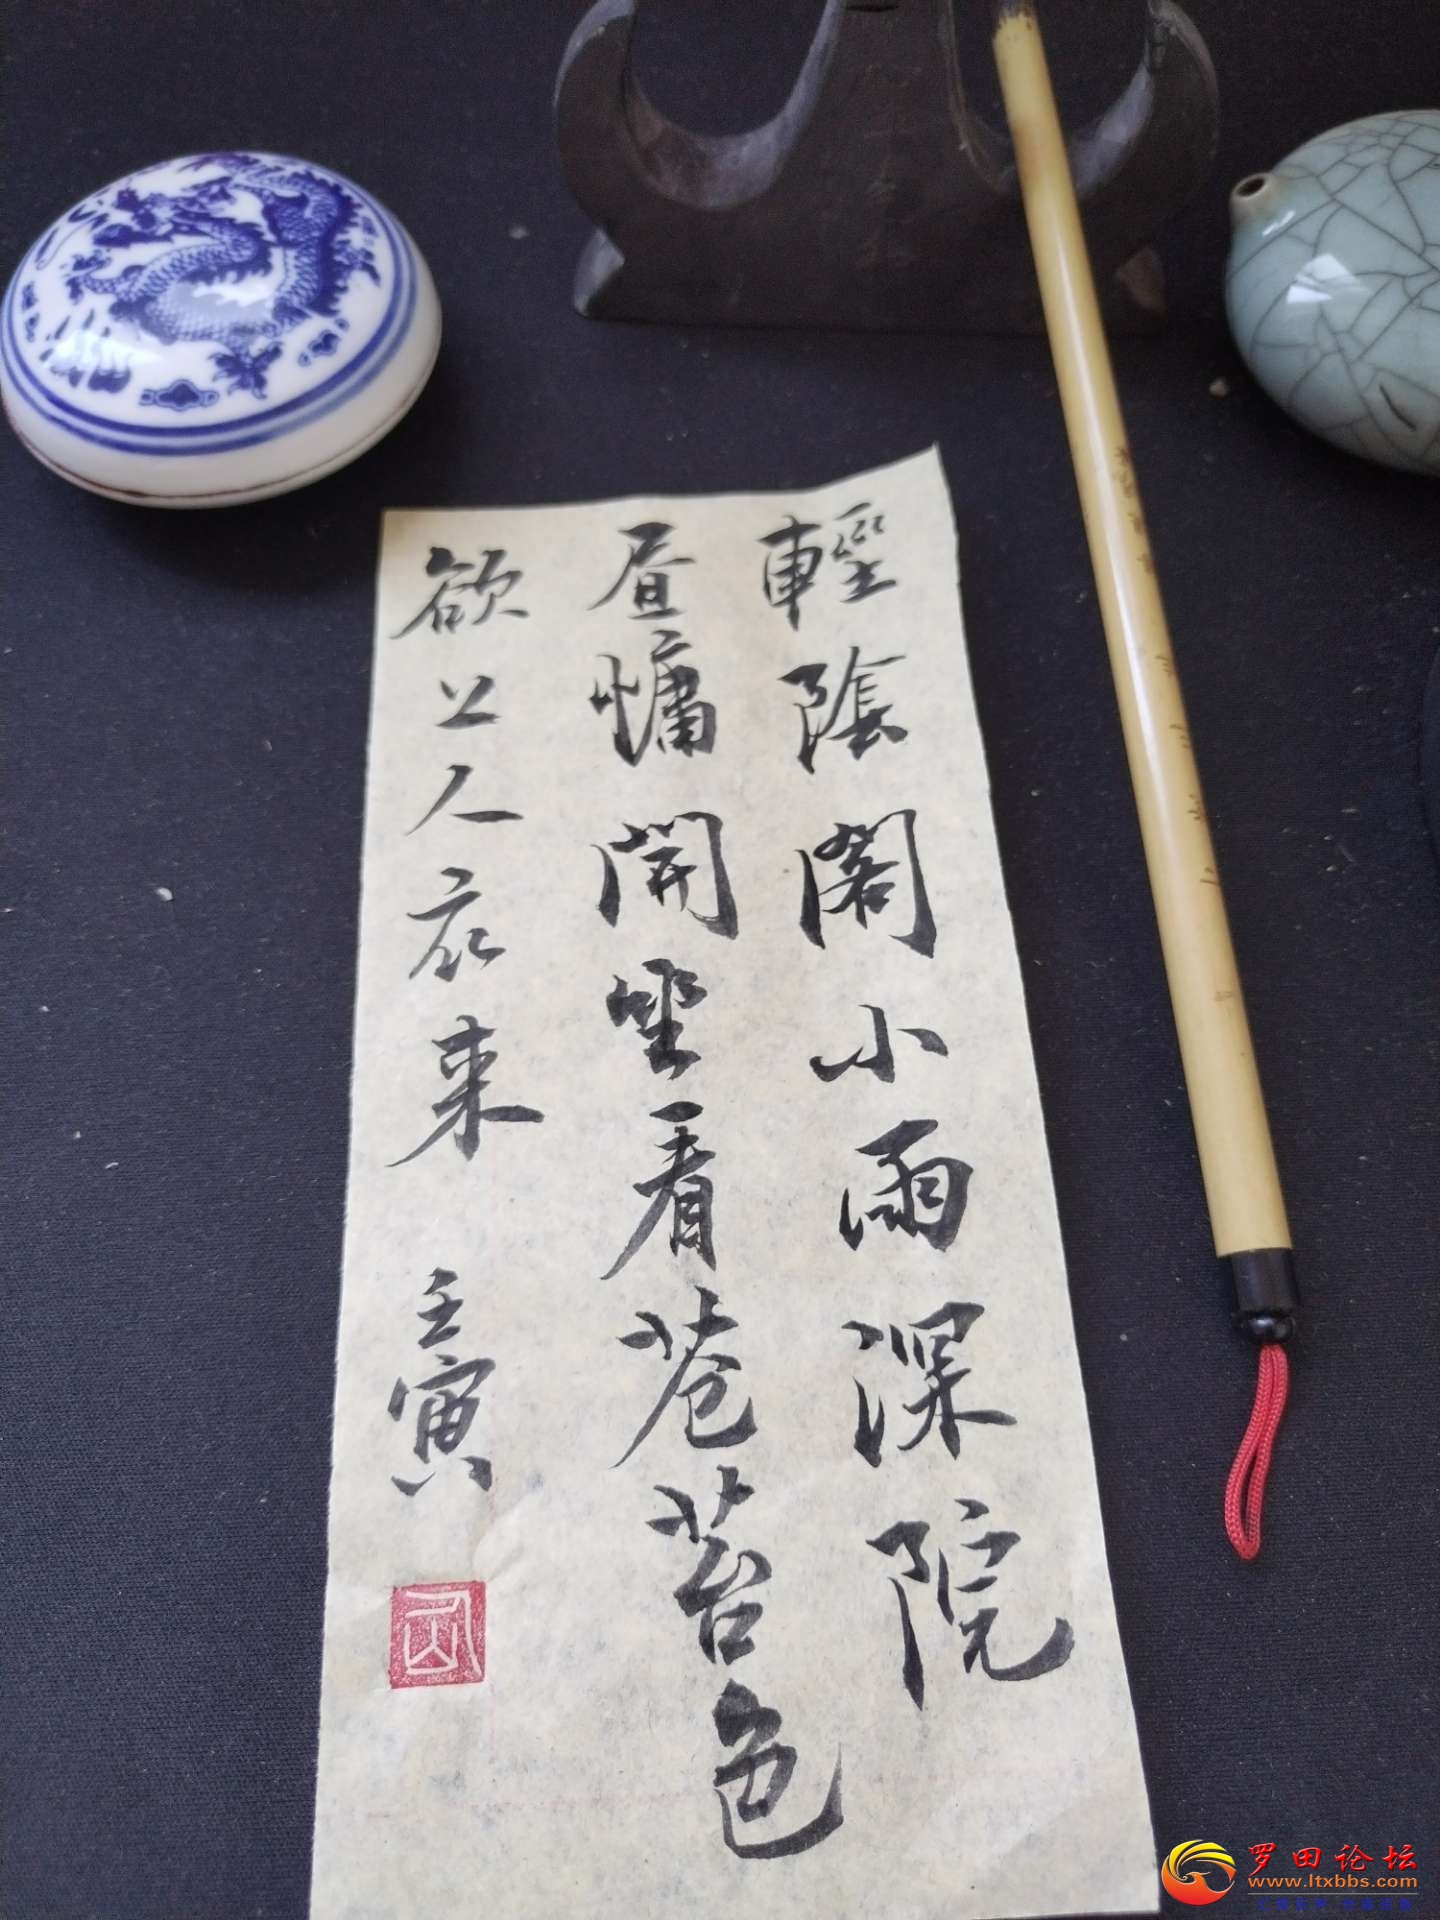 輕陰閣小雨深院
昼慵開坐看蒼苔色
欲上人衣来
壬寅
罗田论坛
www.ltxbbs.com